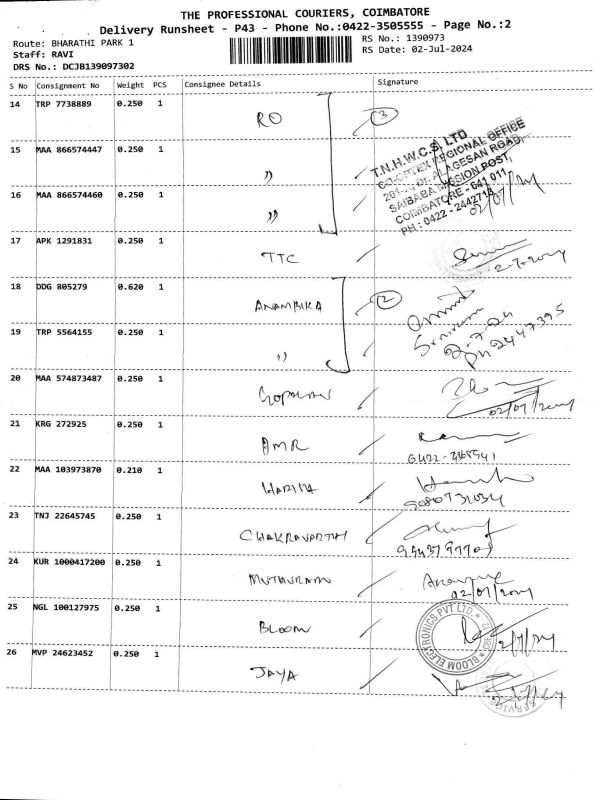 THE PROFESSIONAL COURIERS, COIMBATORE
Delivery Runsheet - P43 - Phone No.:0422-3505555 - Page No.:2
Route: BHARATHI PARK 1
RS No.: 1390973
Staff: RAVI
RS Date: 02-Jul-2024
DRS No.: DCJB139097302
S No Consignment No Weight PCS Consignee Details Signature
14 TRP 7738889 0.250 1 RO 3
T.N.H.W.C.S. LTD
CO-OPTEX REGIONAL OFFICE
ALAGESAN ROAD,
SAIBABA MISSION POST,
COIMBATORE - 641 011
PH : 0422 -
15 MAA 866574447 0.250 1 "
16 MAA 866574460 0.250 1 "
02/07/2024
17 APK 1291831 0.250 1 TTC
2-7-2024
18 DDG 805279 0.620 1 ANAMIKA 2
19 TRP 5564155 0.250 1 "
2-7-24
20 MAA 574873487 0.250 1 GOPALAN
02/07/2024
21 KRG 272925 0.250 1 AMR
22 MAA 103973870 0.210 1 HARINA
23 TNJ 22645745 0.250 1 CHAKRAVARTHI
24 KUR 1000417200 0.250 1 MUTHURAM
02/07/2024
25 NGL 100127975 0.250 1 BLOOM
BLOOM ELECTRONICS PVT LTD.
26 MVP 24623452 0.250 1 JAYA